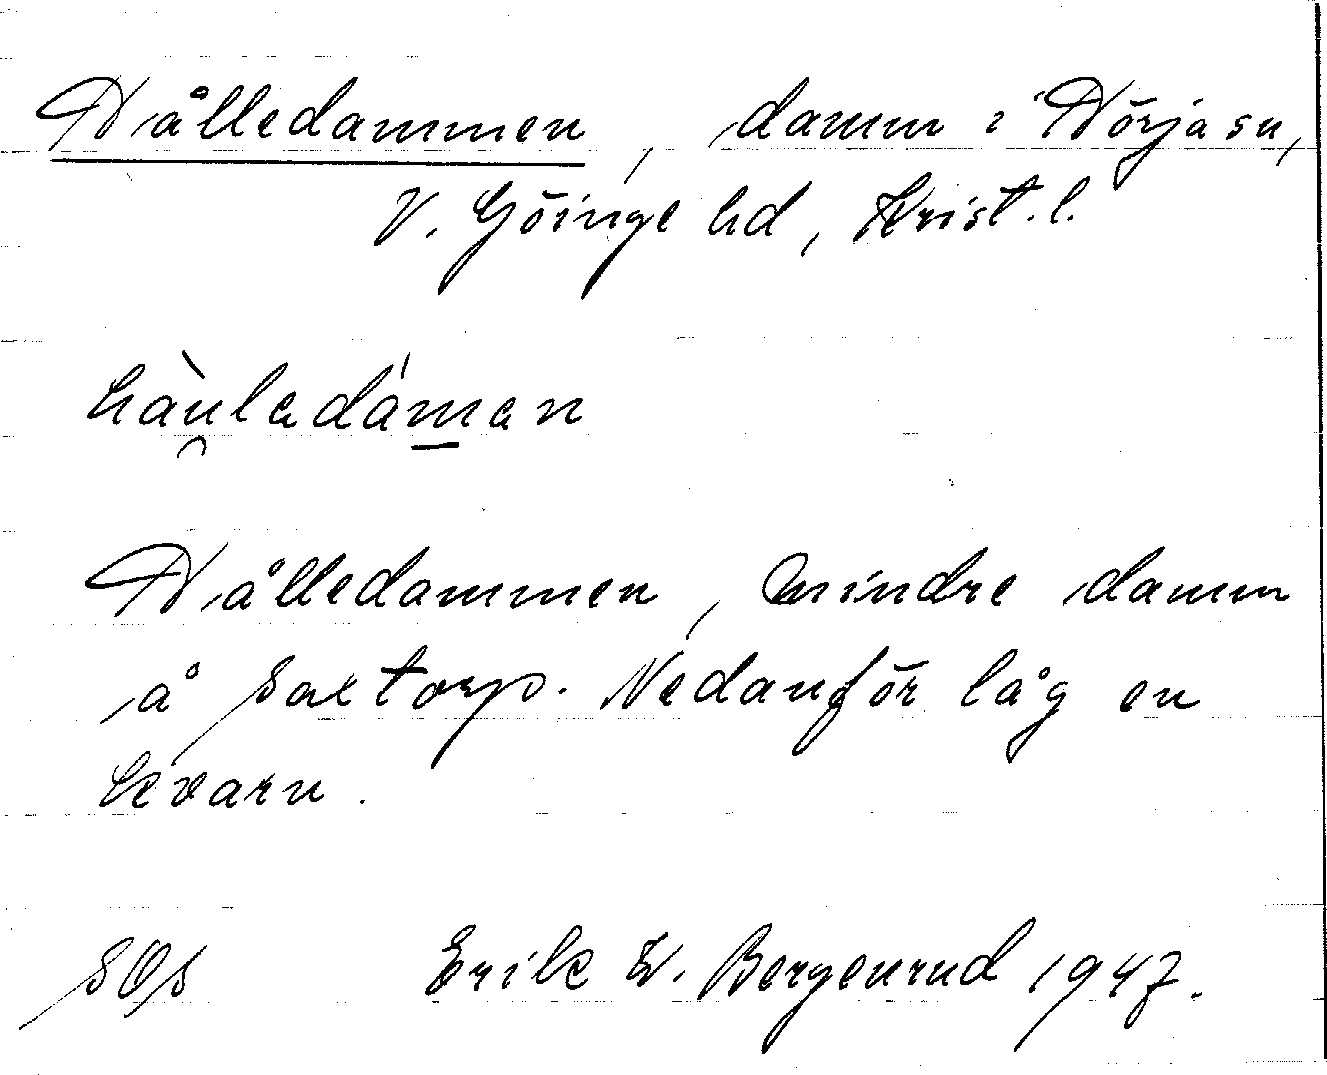 Hålledammen, damm i Hörja sn,
V. Göinge hd, Krist. l.
hàu̯lədám̲ən
Hålledammen, mindre damm
å Saxtorp. Nedanför låg en
kvarn.
SOS Erik W. Bergenrud 1947.